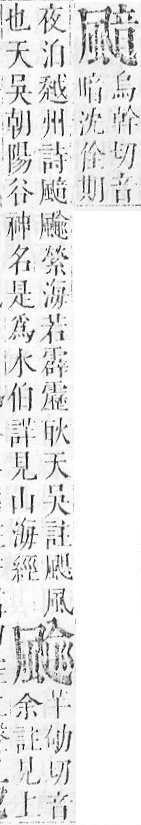 烏幹切音
暗沈佺期
夜泊越州詩縈海若霹靂耿天吳註颶風
也天吳朝陽谷神名是爲水伯詳見山海經
羊劬切音
余註見上